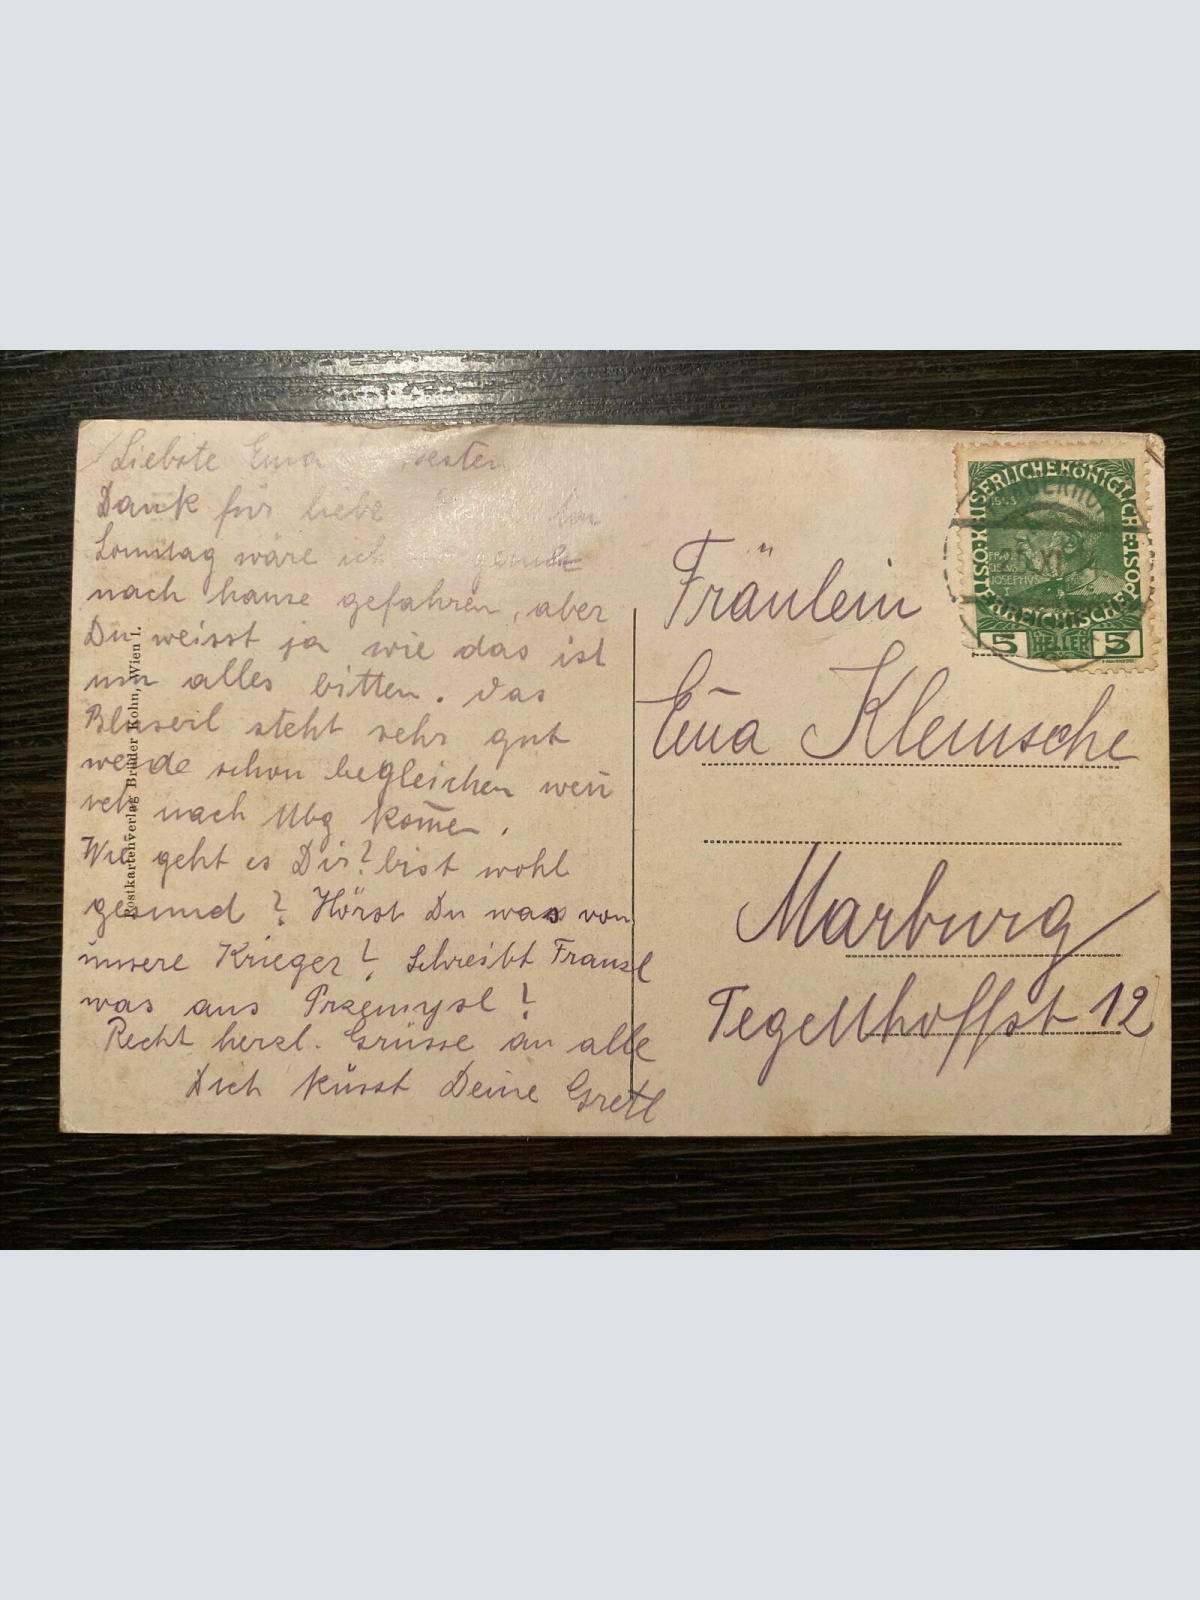 Liebste Ema
Dank für liebe
Sonntag wäre ich
nach hause gefahren, aber
Du weisst ja wie das ist
um alles bitten. das
steht sehr gut
werde schon begleichen wen̄
nach Mbg kom̄en.
Wie geht es Dir? bist wohl
gesund? Hörst Du was von
unsere Krieger? Schreibt Franzl
was aus Przemysl?
Recht herzl. Grüsse an alle
Dich küsst Deine Gretl
Postkartenverlag Brüder Kohn, Wien I.
KAISERLICHE KÖNIGLICHE
ÖSTERREICHISCHE POST
1908
JOSEPHVS
5 HELLER 5
Fräulein
Em̄a Klemsche
Marburg
Tegetthoffst 12